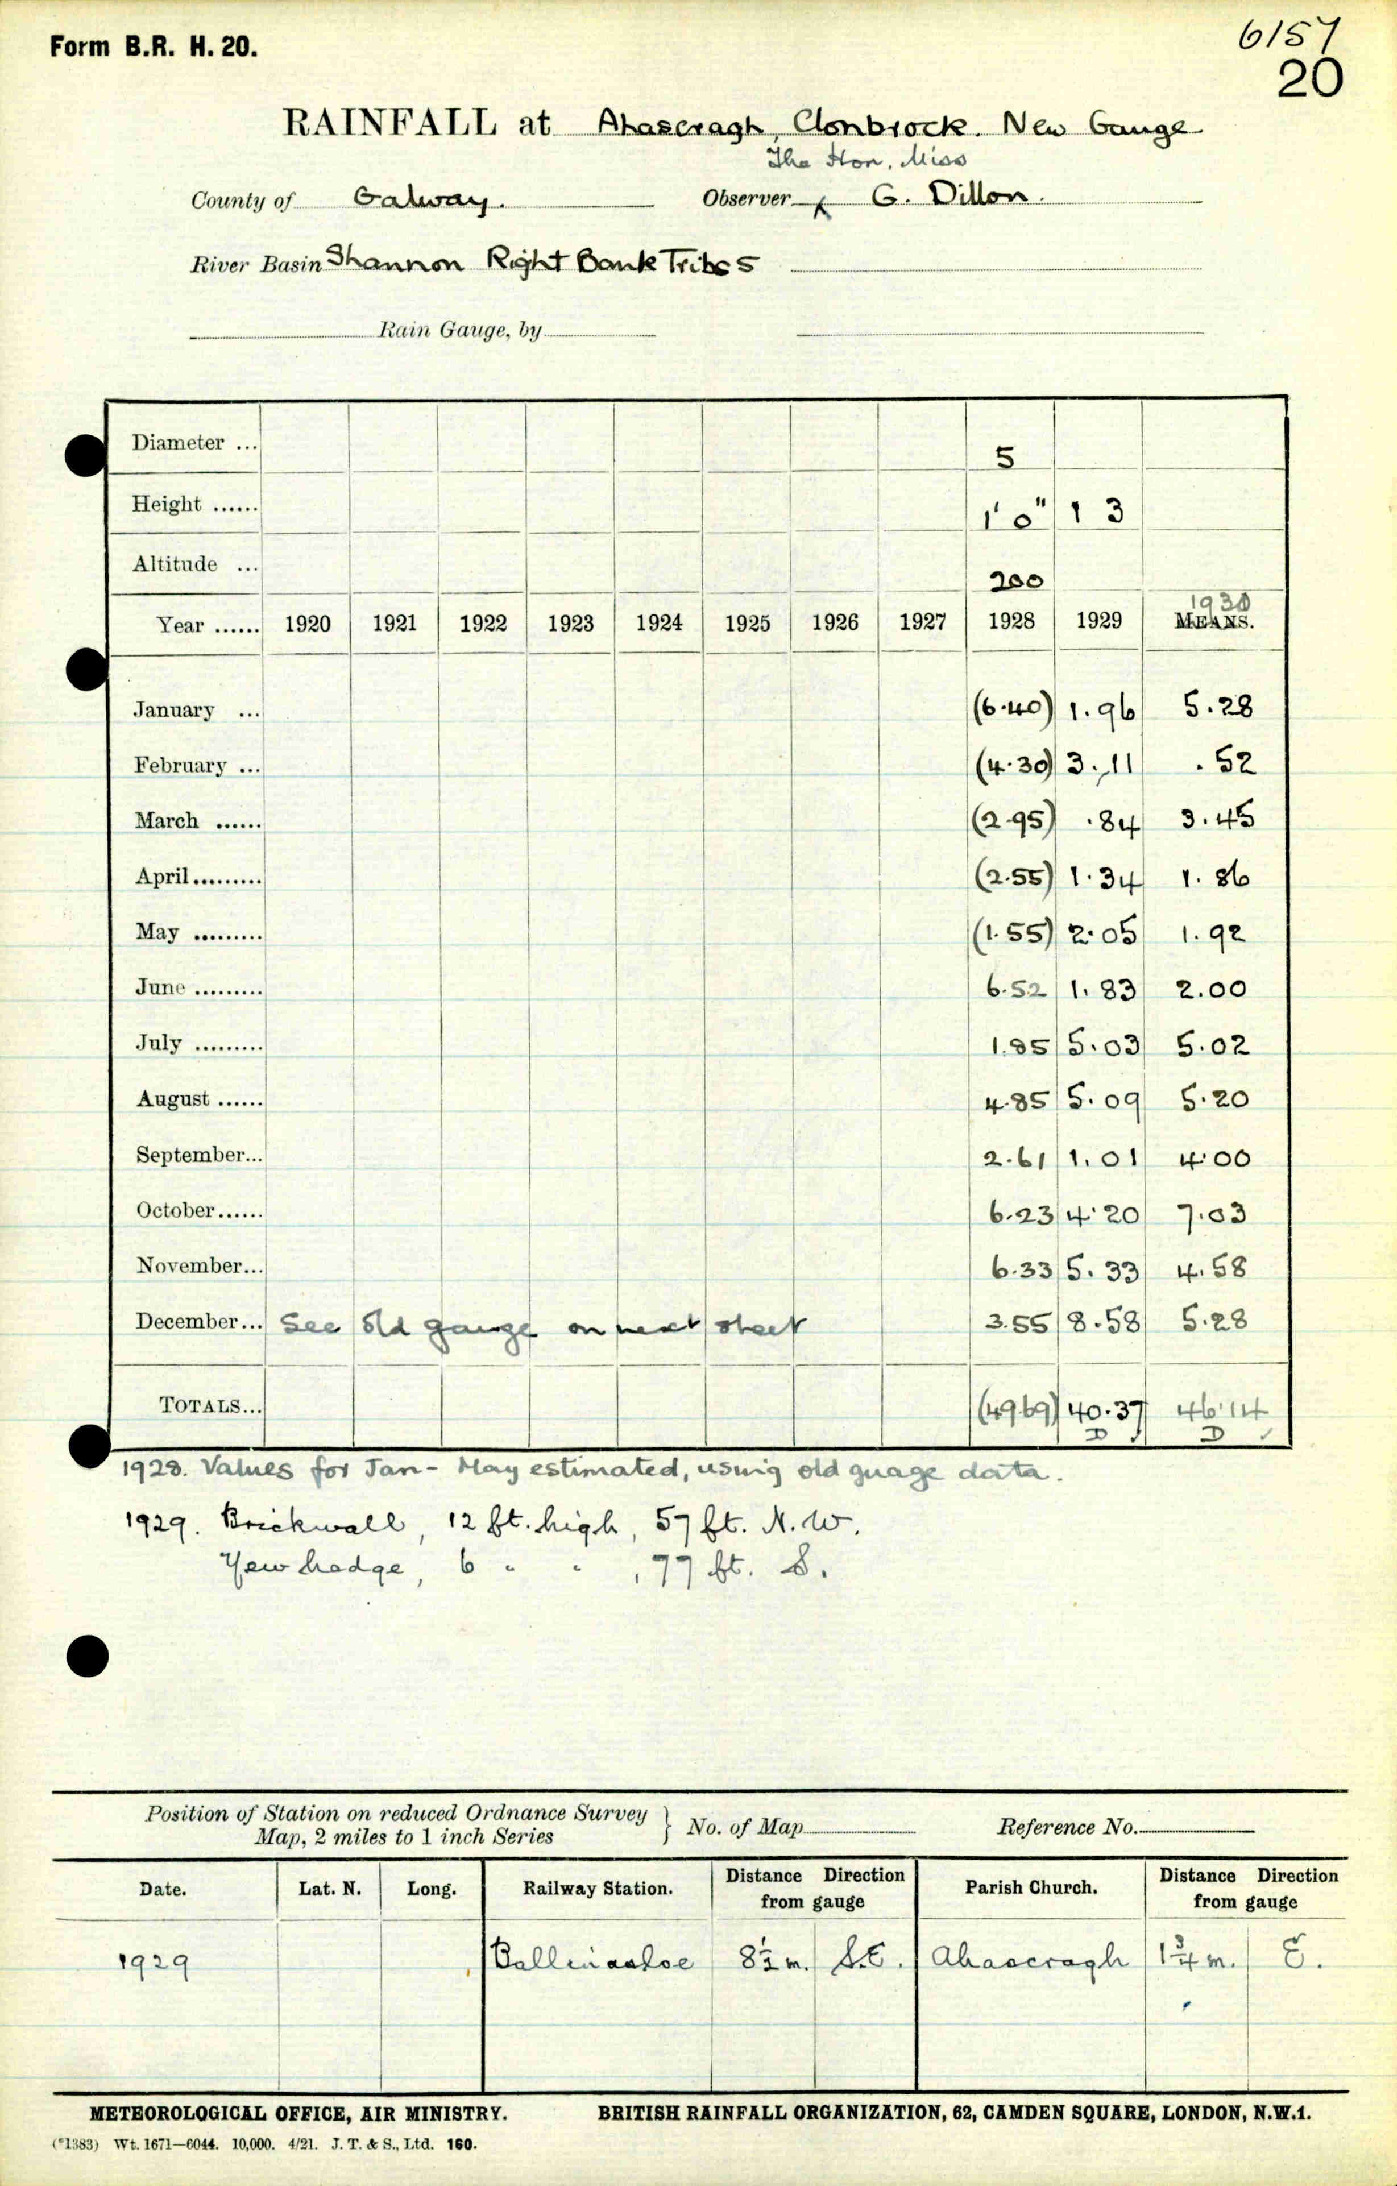 Form B.R. H. 20.
6157
20
RAINFALL at Ahascragh, Clonbrock. New Gauge
The Hon. Miss
County of Galway. Observer G. Dillon.
River Basin Shannon Right Bank Tribs 5
Rain Gauge, by
Diameter ... 5
Height ...... 1' 0" 1 3
Altitude ... 200
1930
Year ...... 1920 1921 1922 1923 1924 1925 1926 1927 1928 1929 MEANS.
January ... (6.40) 1.96 5.28
February ... (4.30) 3.11 .52
March ...... (2.95) .84 3.45
April......... (2.55) 1.34 1.86
May ......... (1.55) 2.05 1.92
June ......... 6.52 1.83 2.00
July ......... 1.85 5.03 5.02
August ...... 4.85 5.09 5.20
September... 2.61 1.01 4.00
October...... 6.23 4.20 7.03
November... 6.33 5.33 4.58
December... See old gauge on next sheet 3.55 8.58 5.28
TOTALS... (49.69) 40.37 46.14
D ✓ D ✓
1928. Values for Jan - May estimated, using old guage data.
1929. Brickwall, 12 ft. high, 57 ft. N.W.
Yew hedge, 6 " " , 77 ft. S.
Position of Station on reduced Ordnance Survey
Map, 2 miles to 1 inch Series } No. of Map Reference No.
Date. Lat. N. Long. Railway Station. Distance Direction from gauge Parish Church. Distance Direction from gauge
1929 Ballinasloe 8½ m. S.E. Ahascragh 1¾ m. E.
METEOROLOGICAL OFFICE, AIR MINISTRY. BRITISH RAINFALL ORGANIZATION, 62, CAMDEN SQUARE, LONDON, N.W.1.
(*1383) Wt. 1671—6044. 10,000. 4/21. J. T. & S., Ltd. 160.